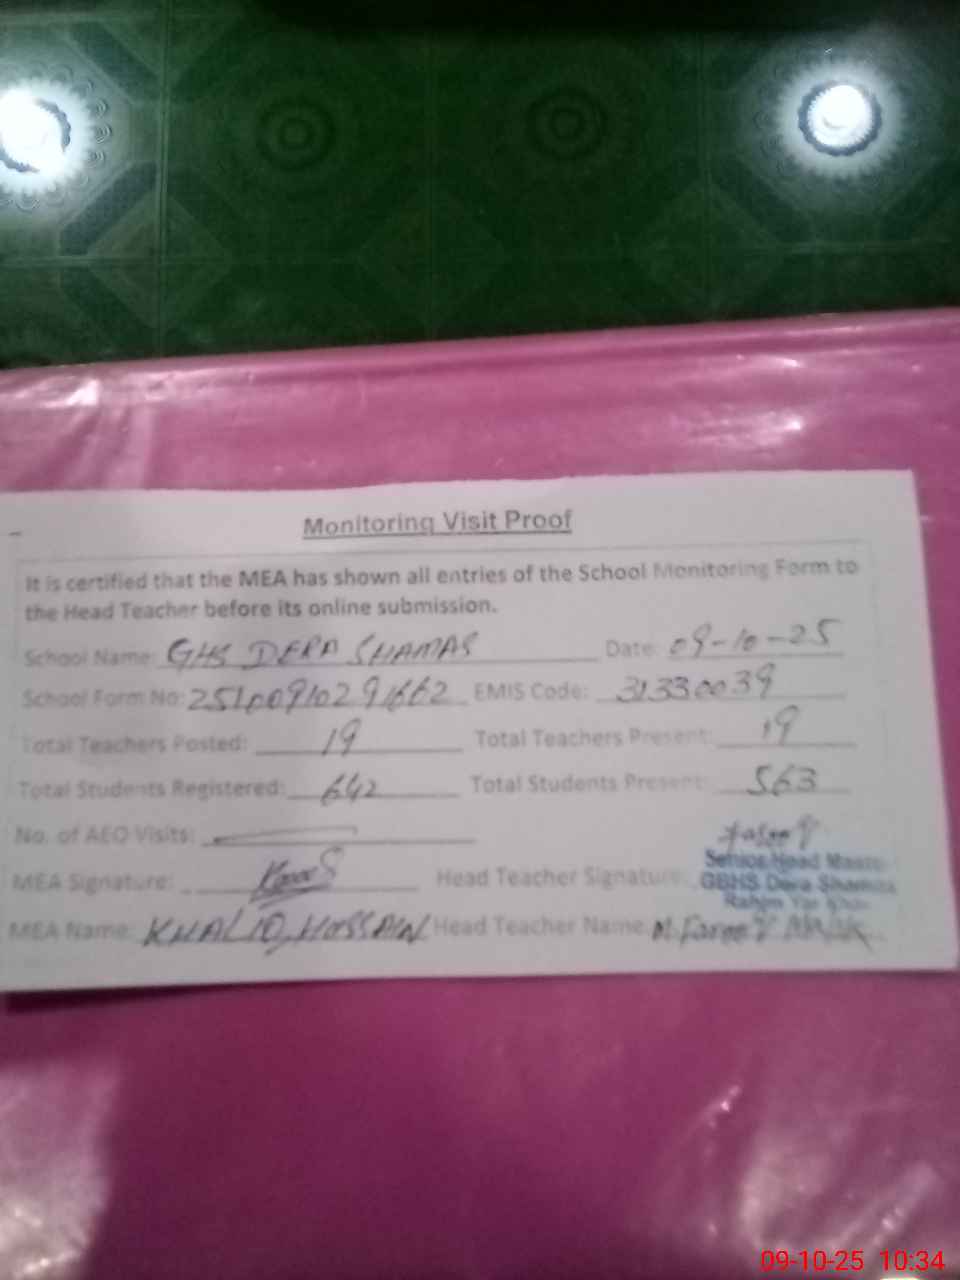 Monitoring Visit Proof
It is certified that the MEA has shown all entries of the School Monitoring Form to
the Head Teacher before its online submission.
School Name: GHS DERA SHAMAS Date: 09-10-25
School Form No: 25100910291662 EMIS Code: 31330039
Total Teachers Posted: 19 Total Teachers Present: 19
Total Students Registered: 642 Total Students Present: 563
No. of AEO Visits:
MEA Signature: Head Teacher Signature:
Senior Head Master
GBHS Dera Shamas
Rahim Yar Khan
MEA Name: KHALID HUSSAIN Head Teacher Name: M. Farooq
09-10-25 10:34